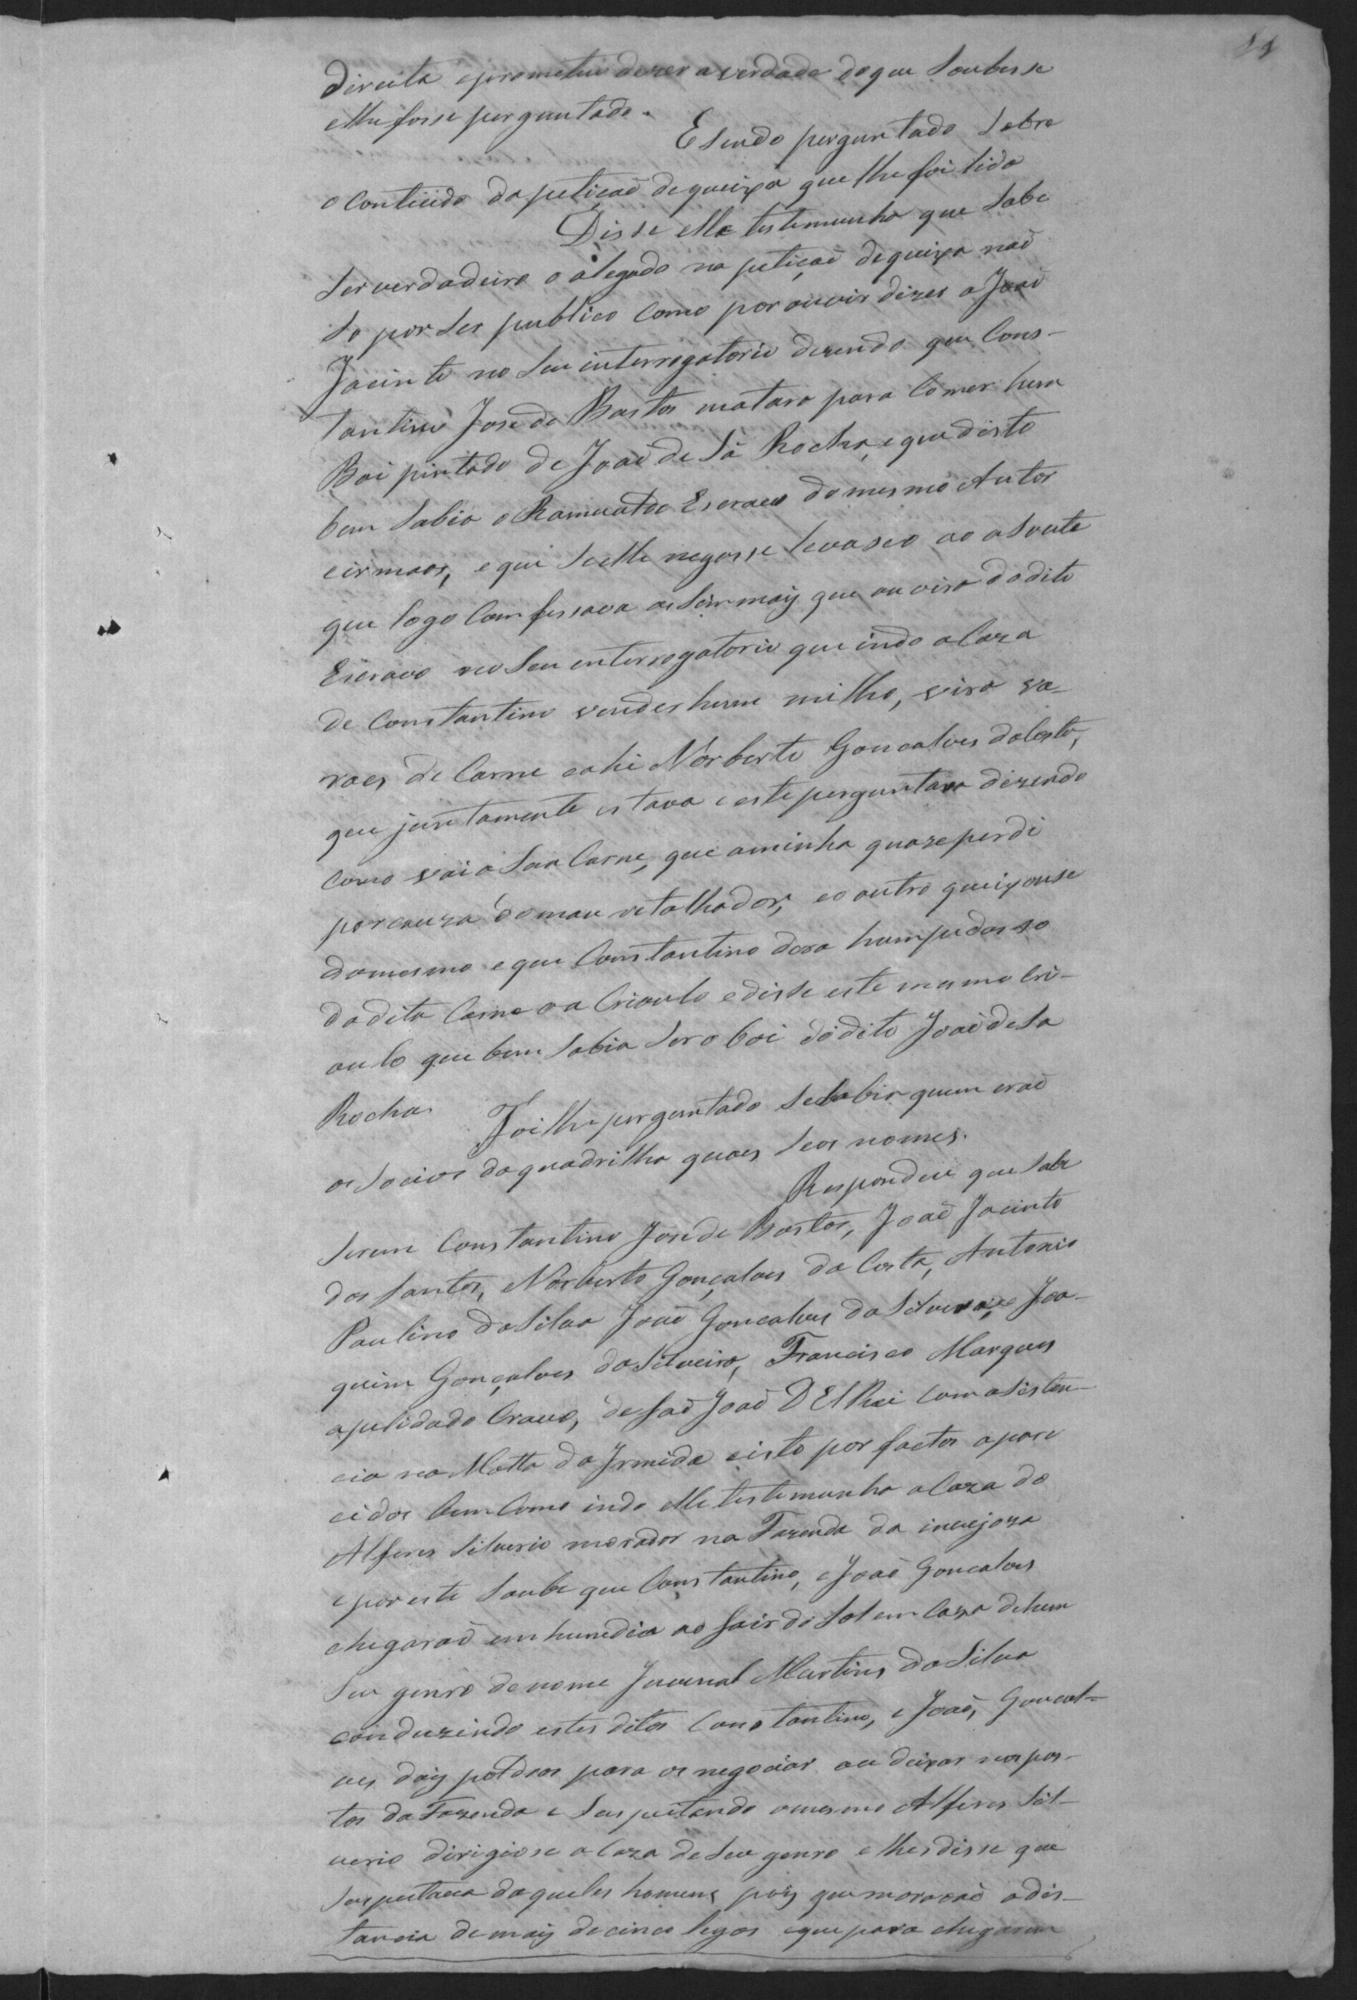 direita eprometeu dizer a verdade do que Soubesse
elhe fosse perguntado.
E sendo perguntado Sobre
o Contiúdo da petiçaõ dequeixa que lhe foi lida
Disse elle testemunha que Sabe
Ser verdadeiro o alegado na petiçaõ dequeixa naõ
So por Ser publico Como por ouvir dizer a Joaõ
Jacinto no Seu interrogatorio dizendo que Cons-
tantino Jose de Bastos matara para Comer hum
Boi pintado de Joaõ de Sá Rocha, e que disto
bem Sabia o Escravo do mesmo Autor
e irmaos, e que Se elle negasse levaseo ao asoute
que logo Comfessava a Sim mais que ouvira do dito
Escravo no Seu enterrogatorio que indo a Caza
de Constantino vender hum milho, vira va-
raes de Carne e ahi Norberto Goncalves da Costa,
que juntamente estava e este perguntara dizendo
Como vai a Sua Carne, que aminha quaze perdi
por cauza do mau retalhador, e o outro queixouse
domesmo e que Constantino dera hum pedasso
da dita Carne a o Crioulo e disse este mesmo Cri-
oulo que bem Sabia Ser o boi do dito Joaõ de Sa
Rocha. Foilhe perguntado Se Sabia quem eraõ
os Socios da quadrilha quaes Seos nomes.
Respondeu que Sabe
Serem Constantino Jose de Bastos, Joaõ Jacinto
dos Santos, Norberto Gonçalves da Costa, Antonio
Paulino da Silva Joaõ Goncalves da Silveira, e Joa-
quim Gonçalves da Silveira, Francisco Marques
apelidado Cravo, de Saõ Joaõ D El Rei Com asisten-
cia na Matta da Irmida e isto por factos apare
cidos bem Como indo elle testemunha a Caza do
Alferes Silverio morador na Fazenda da invejoza
e por este Soube que Constantino, e Joaõ Goncalves
chegaraõ em hum dia ao Sair do Sol em Caza de hum
Seu genro de nome Juvenal Martins da Silva
conduzindo estes ditos Constantino, e Joaõ, Goncal-
ves dois potdros para os negociar ou deixar nos pas-
tos da Fazenda e Suspeitando o mesmo Alferes Sil-
verio dirigiose a Caza de Seu genro e lhes disse que
Suspeitava daqueles homens pois que moravaõ a dis-
tancia de mais de cinco legoas e que para chegarem